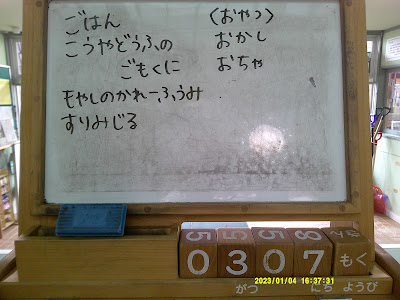 ごはん
こうやどうふの
ごもくに
もやしのかれーふうみ
すりみじる
(おやつ)
おかし
おちゃ
0 3 0 7 もく
がつ にち ようび
2023/01/04 16:37:31